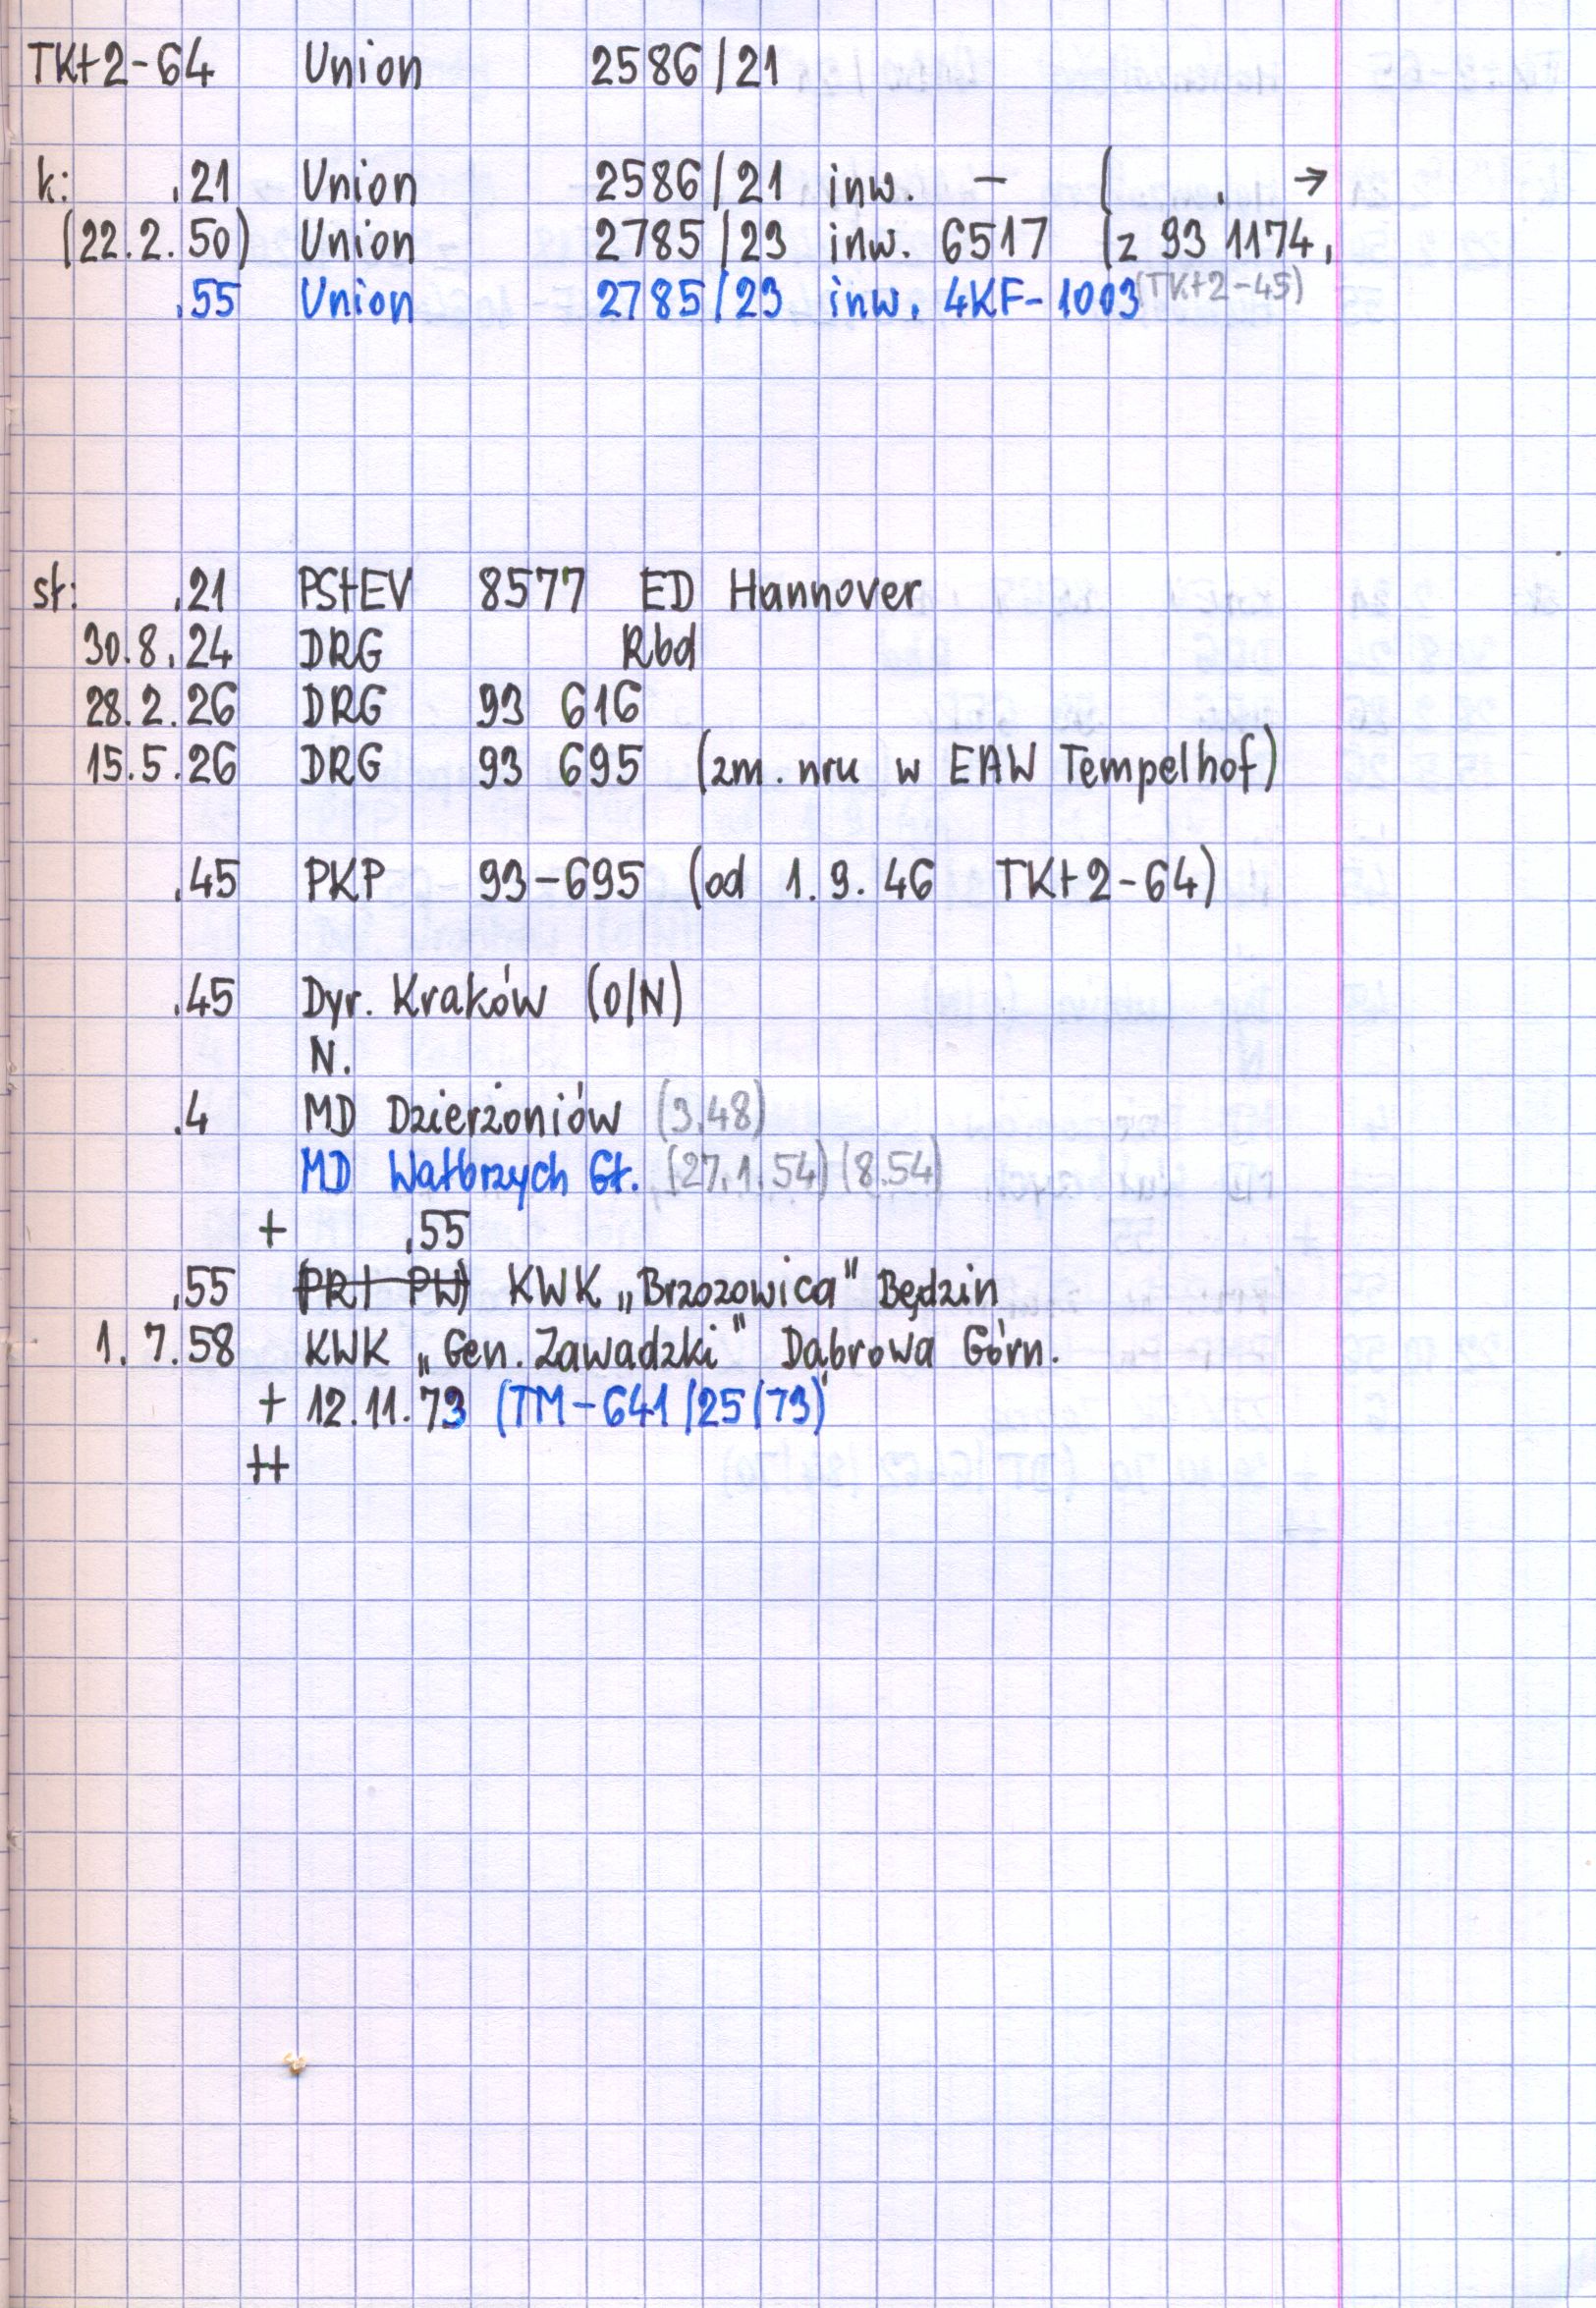 TKt2-64 Union 2586/21
k: .21 Union 2586/21 inw. – ( . →
(22.2.50) Union 2785/23 inw. 6517 (z 93 1174,
.55 Union 2785/23 inw. 4KF-1003 (TKt2-45)
st: .21 PStEV 8577 ED Hannover
30.8.24 DRG Rbd
28.2.26 DRG 93 616
15.5.26 DRG 93 695 (zm. nru w EAW Tempelhof)
.45 PKP 93-695 (od 1.9.46 TKt2-64)
.45 Dyr. Kraków (O/N)
N.
.4 MD Dzierżoniów (3.48)
MD Wałbrzych Gł. (27.1.54) (8.54)
+ .55
.55 (PRT PW) KWK „Brzozowica" Będzin
1.7.58 KWK „Gen. Zawadzki" Dąbrowa Górn.
+ 12.11.73 (TM-641/25/73)
++